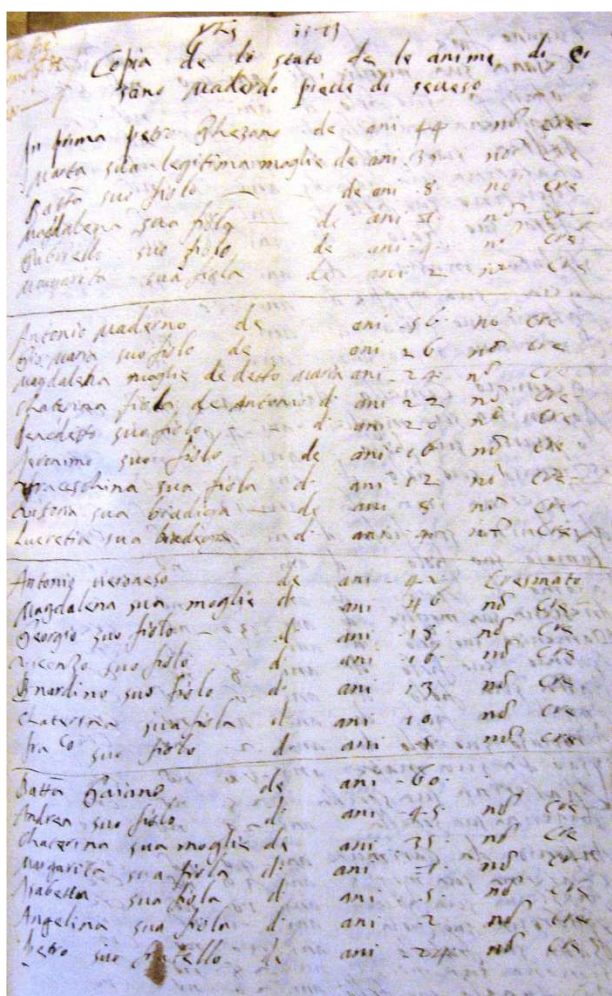 Copia de lo stato de le anime di Ce
sano Maderno pieve di seveso
In prima pietro Ghezano de ani 44 no cre
Marta sua legitima moglie de ani 39 no cre
Batta suo fiolo de ani 8 no cre
Maddalena sua fiola de ani no cre
Gabriello suo fiolo de ani no cre
Margarita sua fiola de ani 2 no cre
Antonio Maderno de ani 56 no cre
Gio Maria suo fiolo de ani 26 no cre
Magdalena moglie de detto Maria ani 24 no cre
Chaterina fiola de Antonio di ani 22 no cre
Benedetto suo fiolo di ani 20 no cre
Jeronimo suo fiolo de ani 16 no cre
Franceschina sua fiola di ani 12 no cre
sua de ani 8 no cre
Lucretia sua di ani no cre
Antonio veroneso de ani 42 Cresimato
Magdalena sua moglie di ani 36 no cre
Georgio suo fiolo di ani 18 no cre
vicenzo suo fiolo di ani 16 no cre
Bnardino suo fiolo di ani 13 no cre
Chaterina sua fiola di ani 10 no cre
fra co suo fiolo di ani 8 no cre
Batta de ani 60
Andrea suo fiolo di ani 45 no cre
Chaterina sua moglie de ani 35 no cre
Margarita sua fiola di ani no cre
Isabetta sua fiola di ani 5 no cre
Angelina sua fiola di ani 2 no cre
Pietro suo fratello de ani no cre